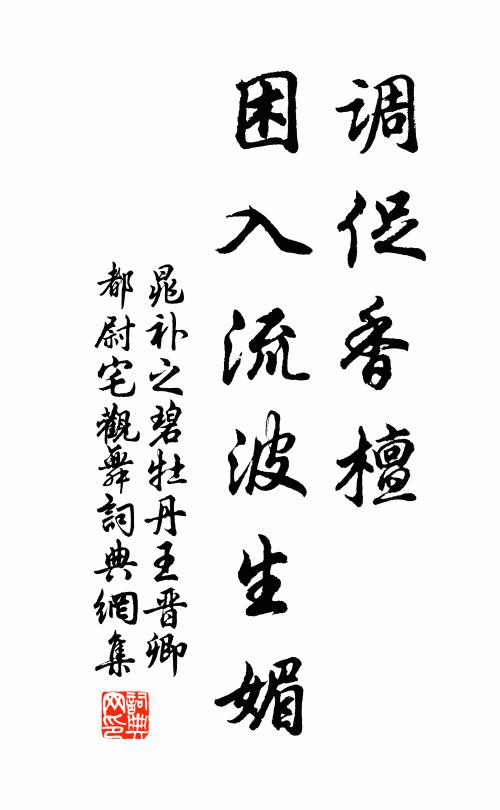 调促香檀
困入流波生媚
晁补之碧牡丹王晋卿
都尉宅觀舞詞典網集
詞典
网印